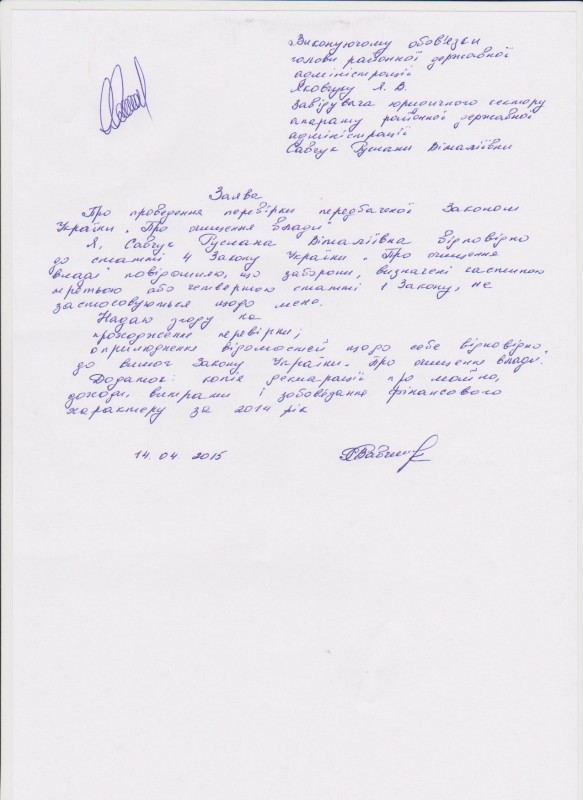 Виконуючому обов'язки
голови районної державної
адміністрації
Яковчуку Я. В.
завідувача юридичного сектору
апарату районної державної
адміністрації
Савчук Руслани Віталіївни
Заява
Про проведення перевірки передбаченої Законом
України „Про очищення влади"
Я, Савчук Руслана Віталіївна відповідно
до статті 4 Закону України „Про очищення
влади" повідомляю, що заборони, визначені частиною
третьою або четвертою статті 1 Закону, не
застосовуються щодо мене.
Надаю згоду на
проходження перевірки;
оприлюднення відомостей щодо себе відповідно
до вимог Закону України „Про очищення влади".
Додаток: копія декларації про майно,
доходи, витрати і зобов'язання фінансового
характеру за 2014 рік
14.04 2015